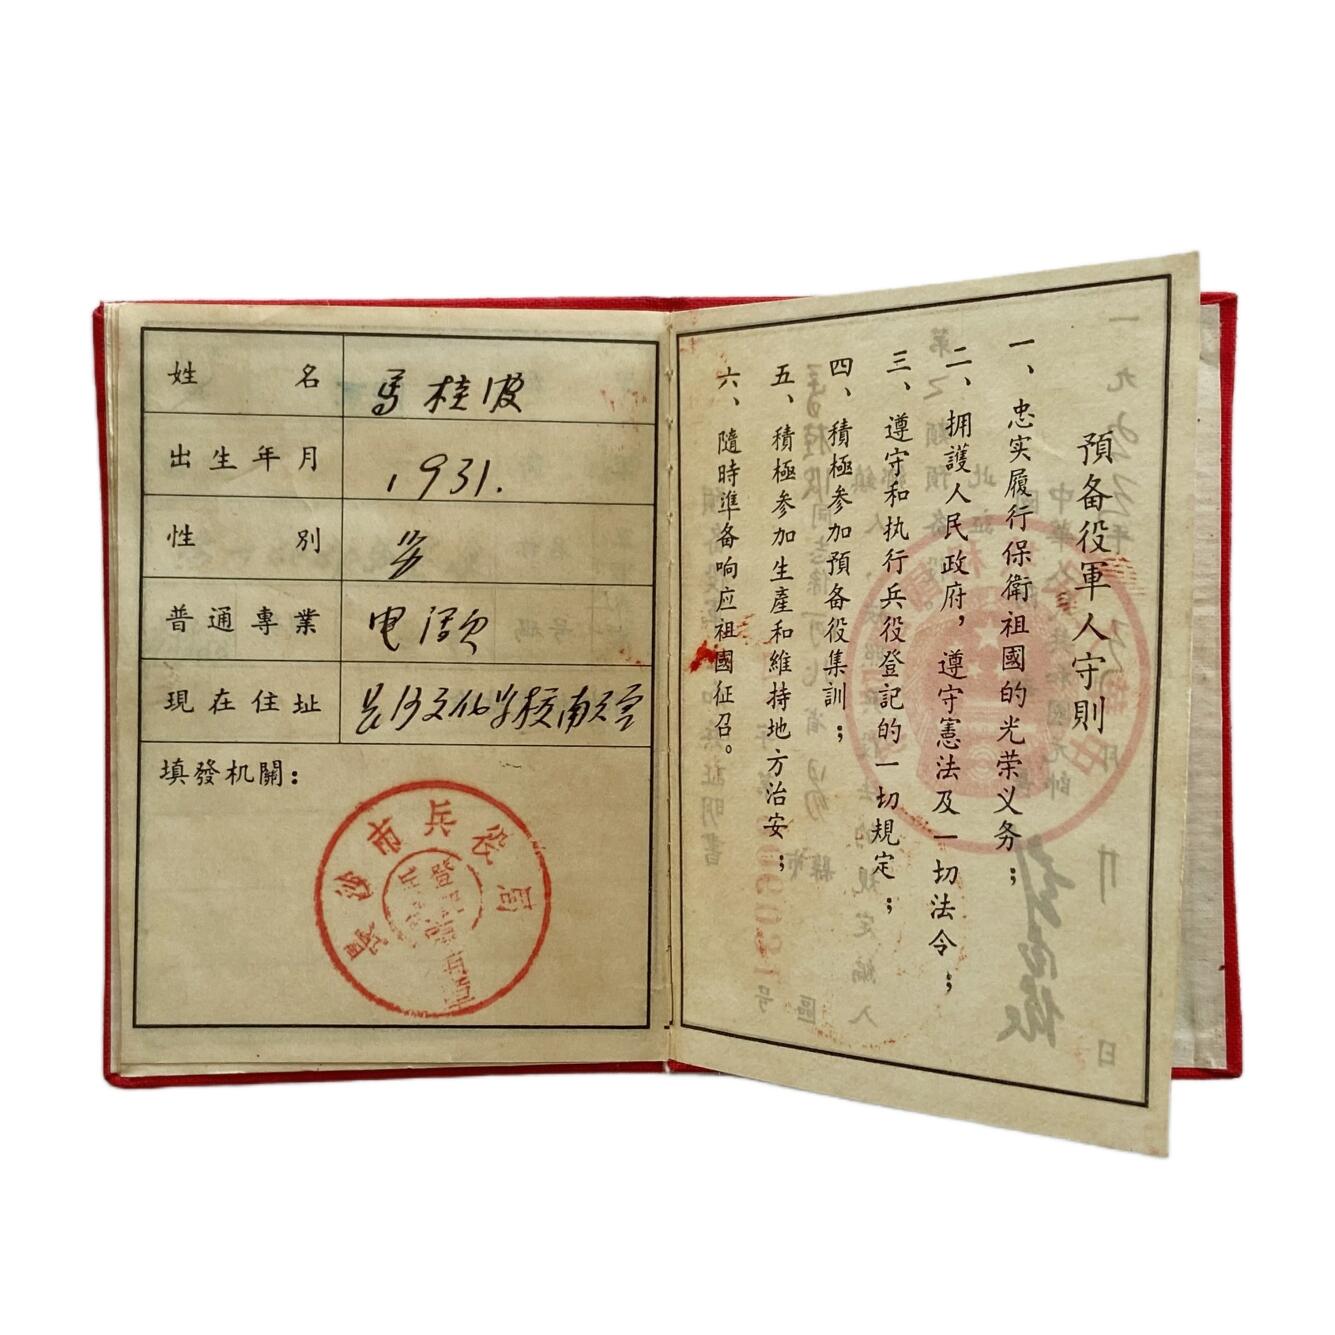 姓名 馬桂波
出生年月 1931.
性別
普通專業 电
現在住址 文化学校南
填發机關：
長沙市兵役局
預备役軍人守則
一、忠实履行保衛祖國的光荣义务；
二、拥護人民政府，遵守憲法及一切法令；
三、遵守和执行兵役登記的一切規定；
四、積極参加預备役集訓；
五、積極参加生產和維持地方治安；
六、隨時準备响应祖國征召。